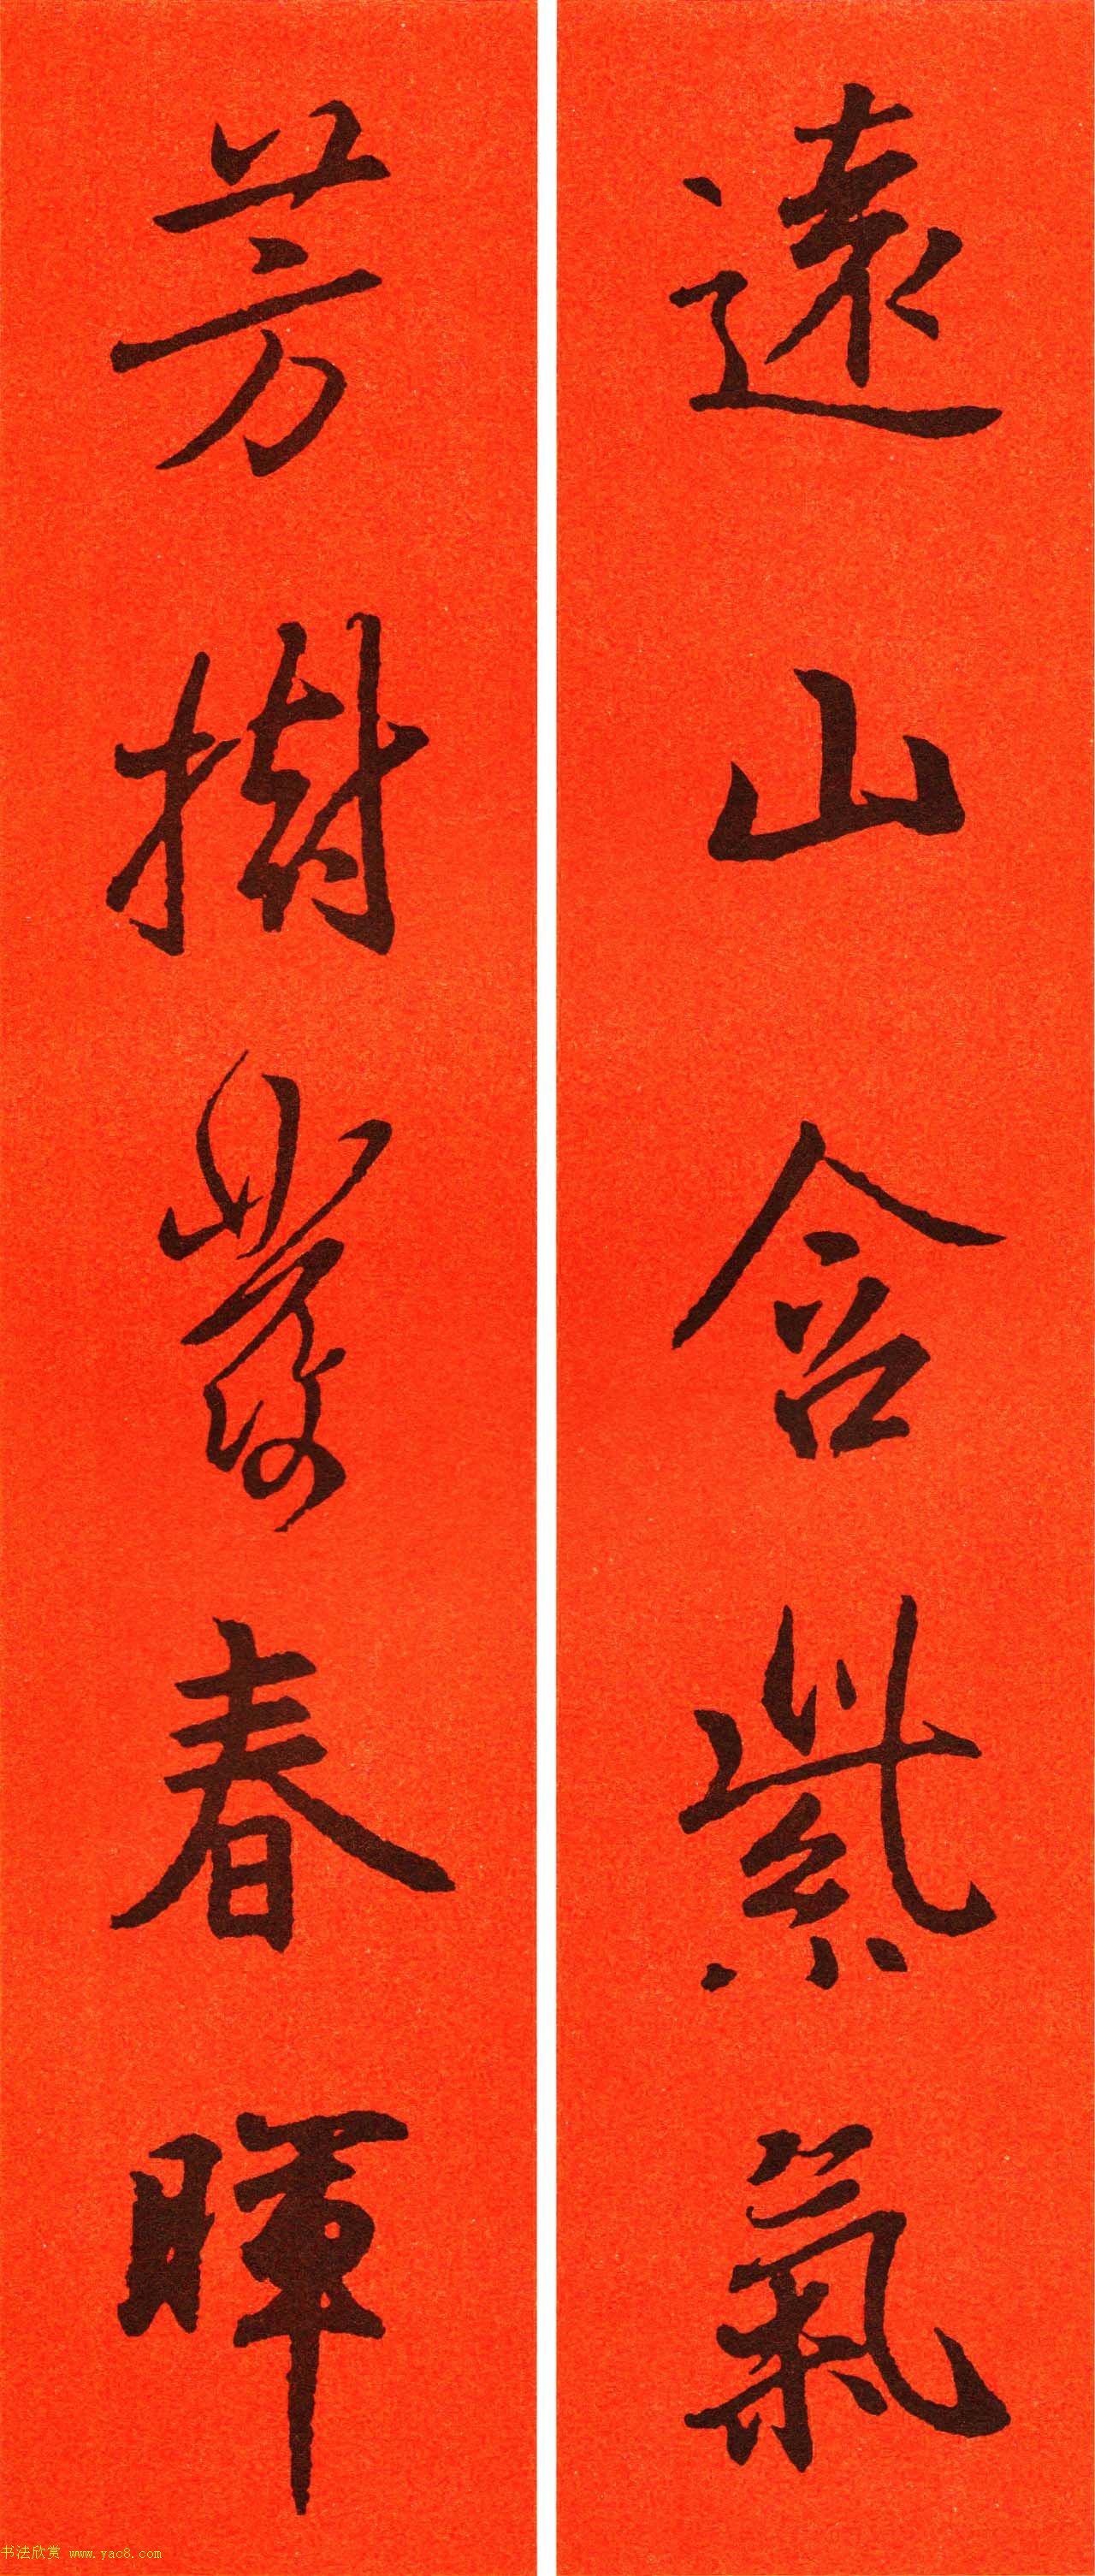 遠山含紫氣
芳樹發春暉
书法欣赏 www.yac8.com